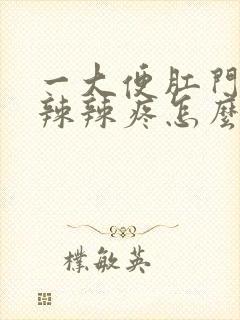 一大便肛門
辣辣疼怎麼
樸敏英